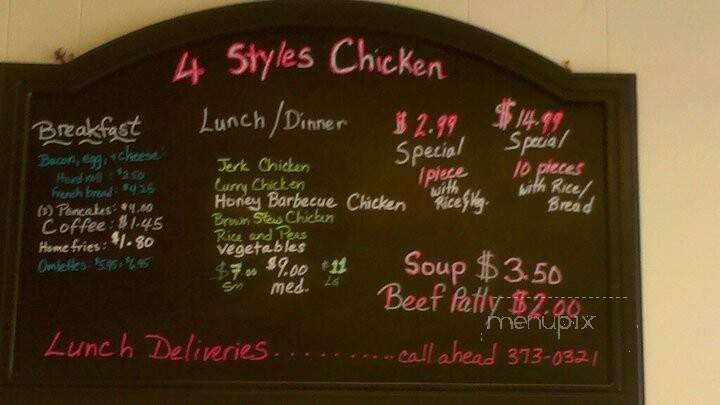 4 Styles Chicken
Breakfast
Bacon, egg, + cheese:
Hard roll : $2.50
French bread : $4.25
(3) Pancakes: $4.00
Coffee: $1.45
Home fries: $1.80
Omlettes: $5.95 - $6.95
Lunch/Dinner
Jerk Chicken
Curry Chicken
Honey Barbecue Chicken
Brown Stew Chicken
Rice and Peas
Vegetables
$7.00 $9.00 $11
Sm med. LG
$2.99
Special
1 piece
with
Rice & Vg.
$14.99
Special
10 pieces
with Rice/
Bread
Soup $3.50
Beef Patty $2.00
menupix
Lunch Deliveries...........call ahead 373-0321